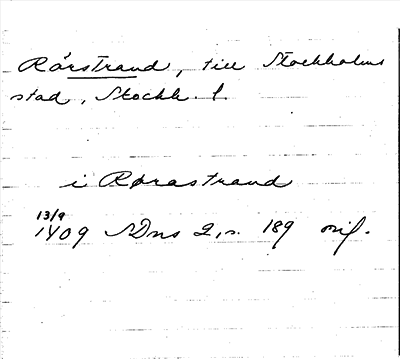 Rörstrand, till Stockholms
stad, Stockh. l.
i Rørastrand
13/9
1409 SDns 2, s. 189 orig.